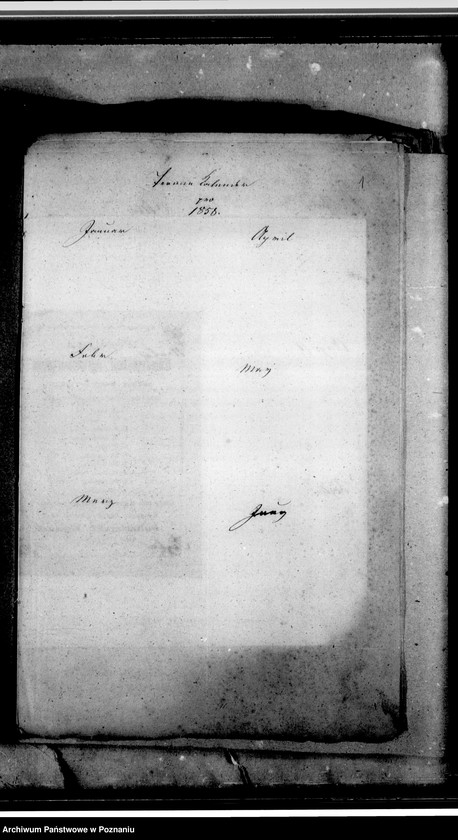 Termin Kalender
1
pro
1858.
Januar
April
Febr
May
Merz
Juny
Archiwum Państwowe w Poznaniu